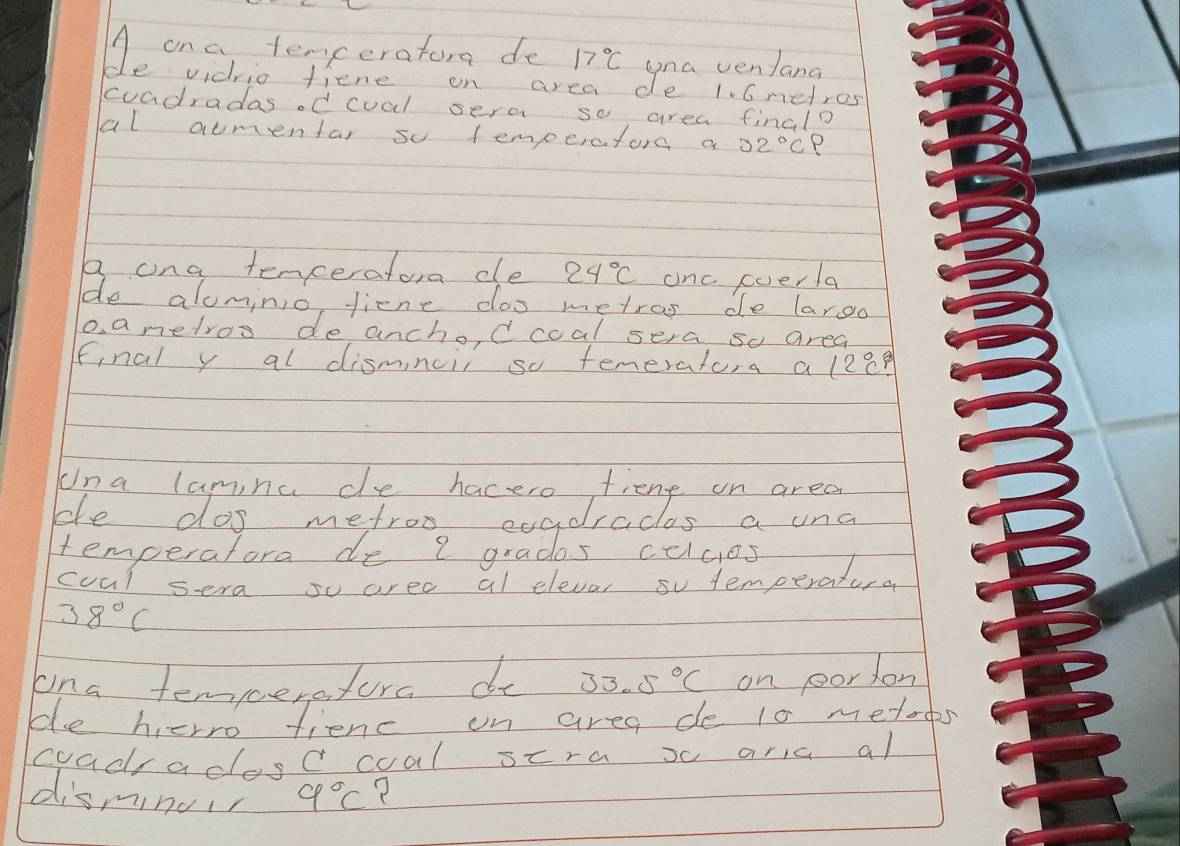 A ona temperatora de 17°C yna ventana
de vidrio tiene on area de 1.6 metros
cuadradas. d cual sera so area final?
al aumentar su temperatora a 32°C?
a ona temperatora de 24°C onc puerta
de alominio, tiene dos metros de largo
0.a metros de ancho, c coal sera su area
final y al disminoir su temeratora a 12°C?
Una lamina de hacero tiene un area
de dos metros cuadrados a una
temperatora de 2 grados celcios
cual sera su area al elevar su temperatura
38°C
ona temperatura de 33.5°C on porton
de hierro tiene un area de 10 metros
cuadrados C coal sera su aria al
disminuir 9°C?